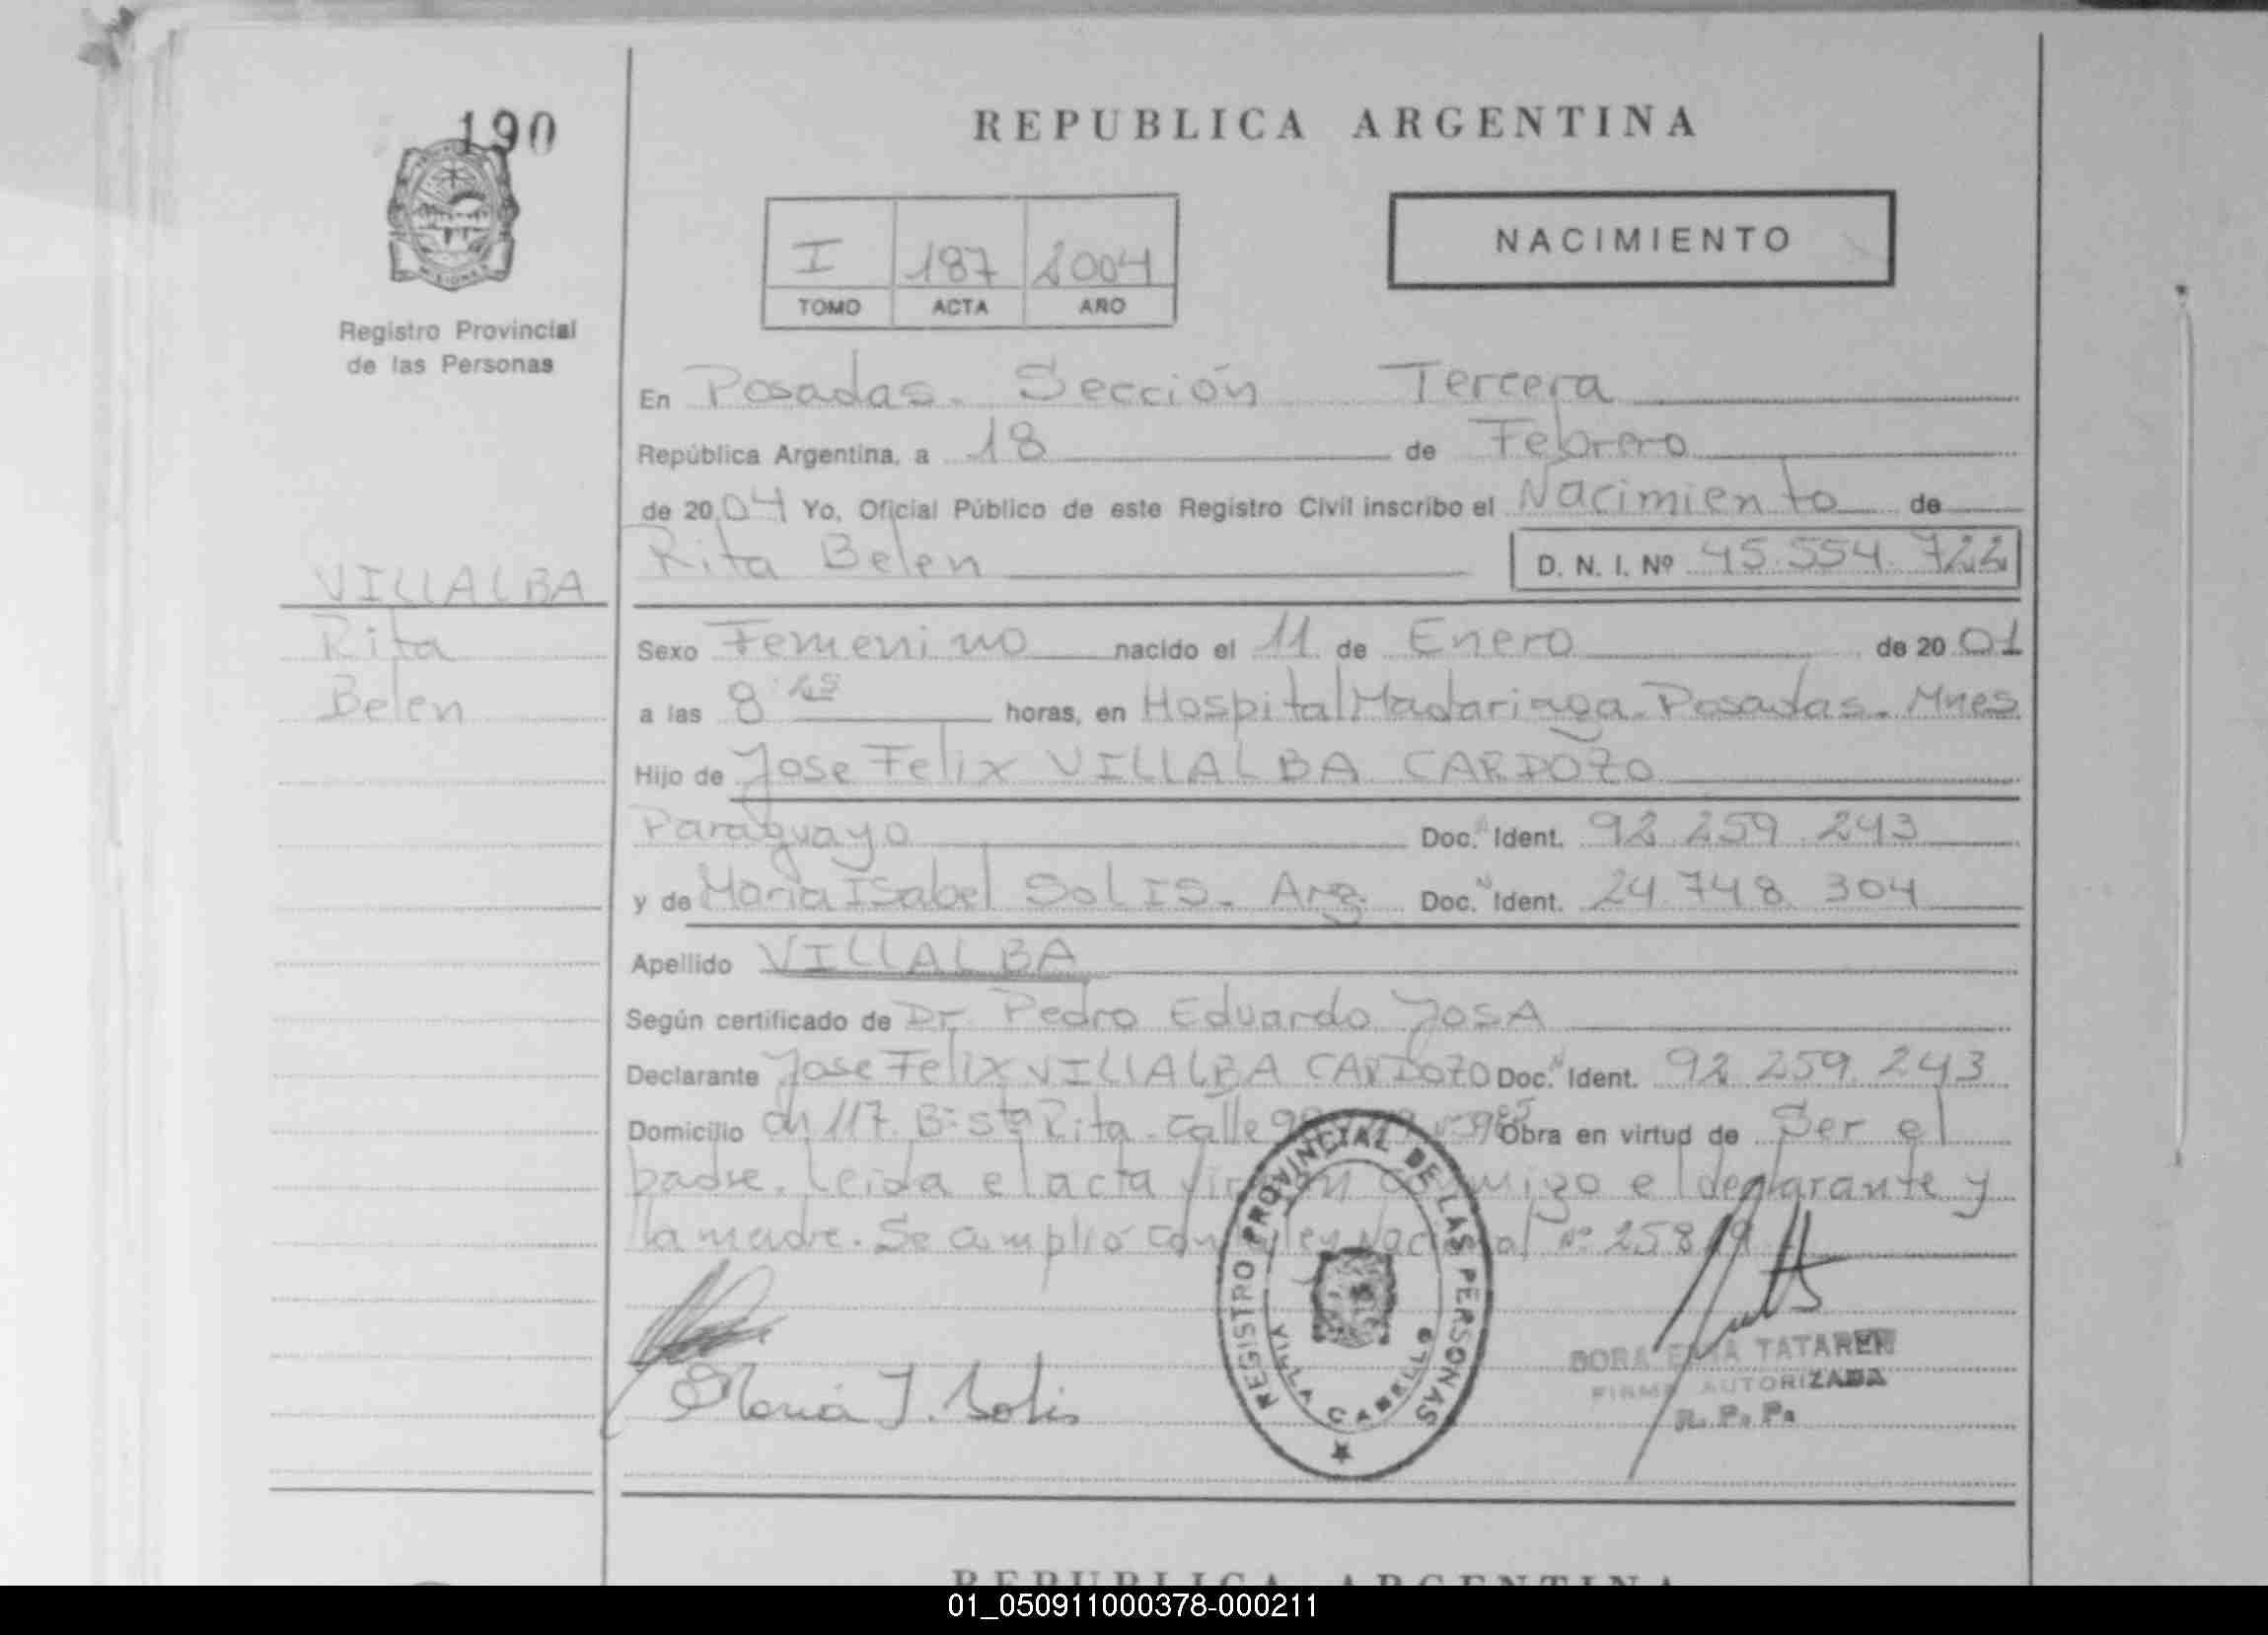 190
REPUBLICA ARGENTINA
NACIMIENTO
I 187 2004
TOMO ACTA AÑO
MISIONES
Registro Provincial
de las Personas
En Posadas. Sección Tercera
República Argentina, a 18 de Febrero
de 2004 Yo, Oficial Público de este Registro Civil inscribo el Nacimiento de
Rita Belen D. N. I. Nº 45.554.722
VILLALBA
Rita
Belen
Sexo Femenino nacido el 11 de Enero de 2001
a las 8 horas, en Hospital Madariaga. Posadas. Mnes
Hijo de Jose Felix VILLALBA CARDOZO
Paraguayo Doc. Ident. 92.259.243
y de Maria Isabel SOLIS. Arg. Doc. Ident. 24.748.304
Apellido VILLALBA
Según certificado de Dr. Pedro Eduardo JOSA
Declarante Jose Felix VILLALBA CARDOZO Doc. Ident. 92.259.243
Domicilio Ch 117. Bº Sta Rita. Calle Obra en virtud de Ser el
padre. Leida el acta firman conmigo el declarante y
la madre. Se cumplió con Ley Nacional Nº 25819
Maria I. Solis
REGISTRO PROVINCIAL DE LAS PERSONAS
VILLA CABELLO
DORA TATAREN
FIRMA AUTORIZADA
R. P. P.
REPUBLICA ARGENTINA
01_050911000378-000211